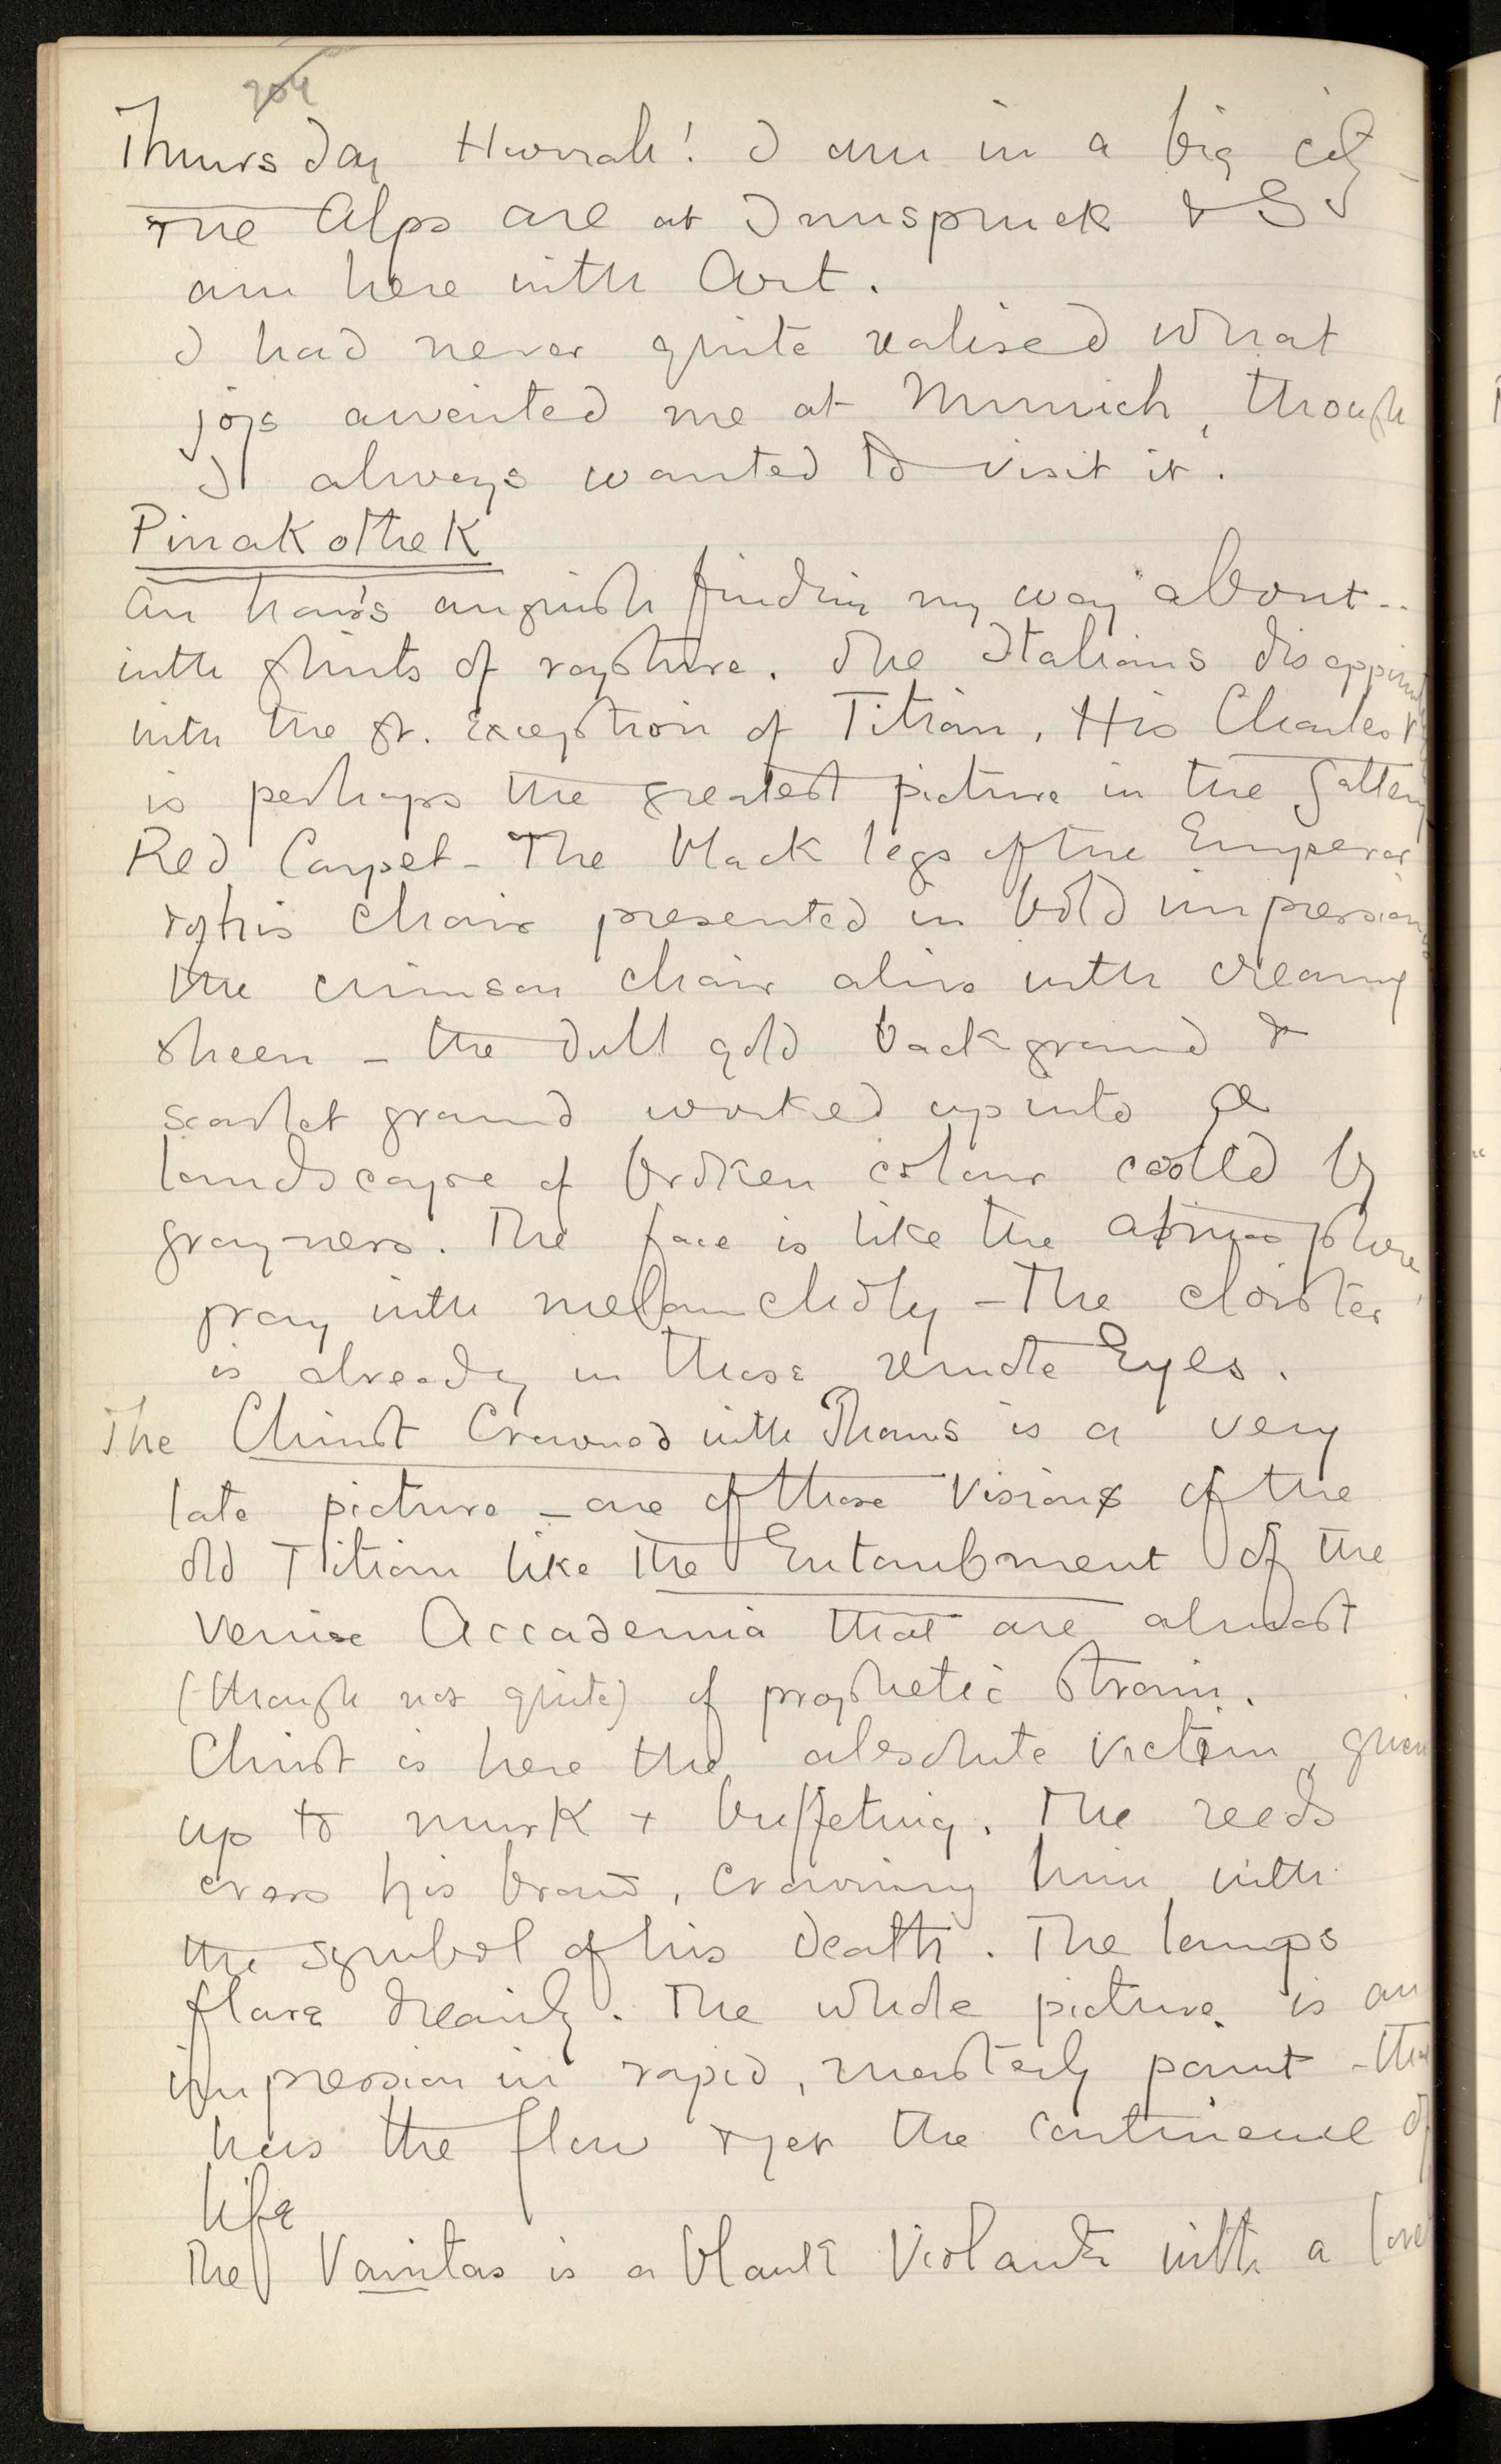 204
Thursday Hurrah! I am in a big city
The Alps are at Innspruck & I
am here with Art.
I had never quite realised what
joys awaited me at Munich, though
I always wanted to visit it.
Pinakothek
An hour's anguish finding my way about..
with glints of rapture. The Italians disappoint
with the gr. exception of Titian. His Charles V
is perhaps the greatest picture in the Gallery
Red Carpet - The black legs of the Emperor
& of his chair presented in bold impression
the crimson chair alive with creamy
sheen - the dull gold background &
scarlet ground worked up into a
landscape of broken colour cooled by
grayness. The face is like the atmosphere,
gray with melancholy - The cloister
is already in those remote Eyes.
The Christ Crowned with Thorns is a very
late picture - one of those visions of the
old Titian like The Entombment of the
Venice Accademia that are almost
(though not quite) of prophetic strain.
Christ is here the absolute victim, given
up to murk & buffeting. The reeds
cross his brow, crowning him with
the symbol of his death. The lamps
flare drearily. The whole picture is an
impression in rapid, masterly paint - that
has the flow & yet the continence of
life
The Vanitas is a blank Violante with a